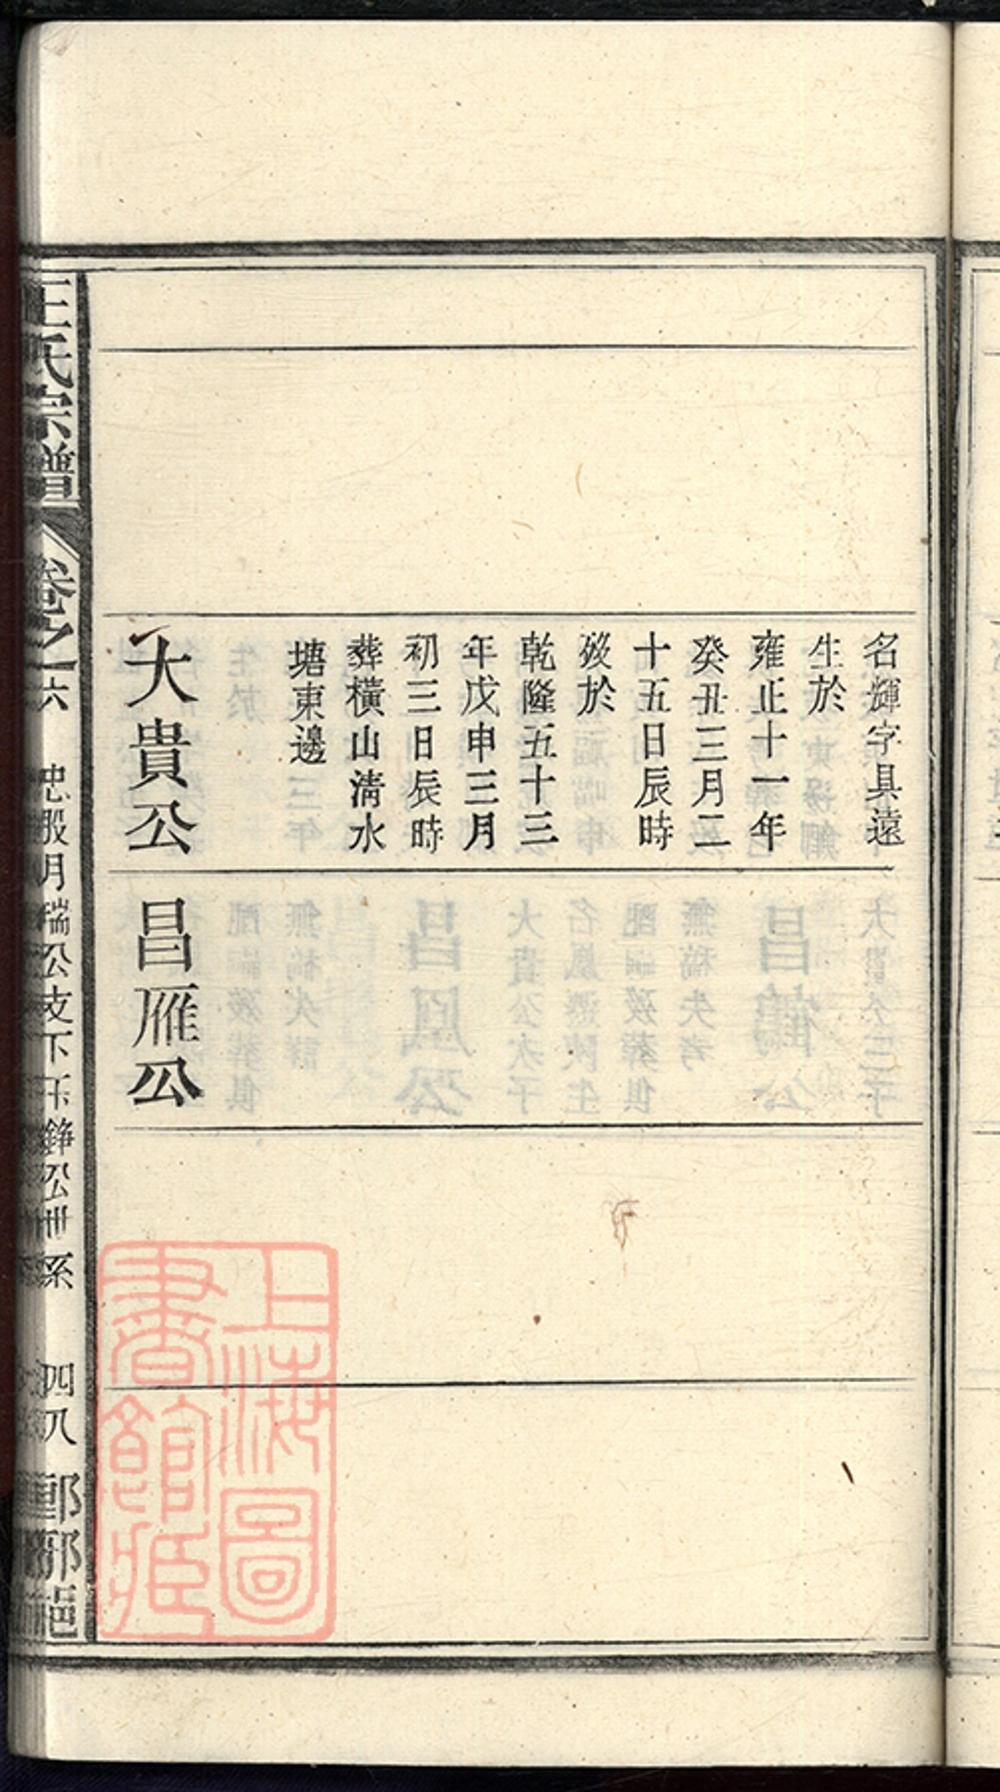 名輝字具遠
生於
雍正十一年
癸丑三月二
十五日辰時
歿於
乾隆五十三
年戊申三月
初三日辰時
葬橫山清水
塘東邊
大貴公
昌雁公
王氏宗譜
卷之六
月瑞公支下玉錚公世系
四八
上海圖
書館藏